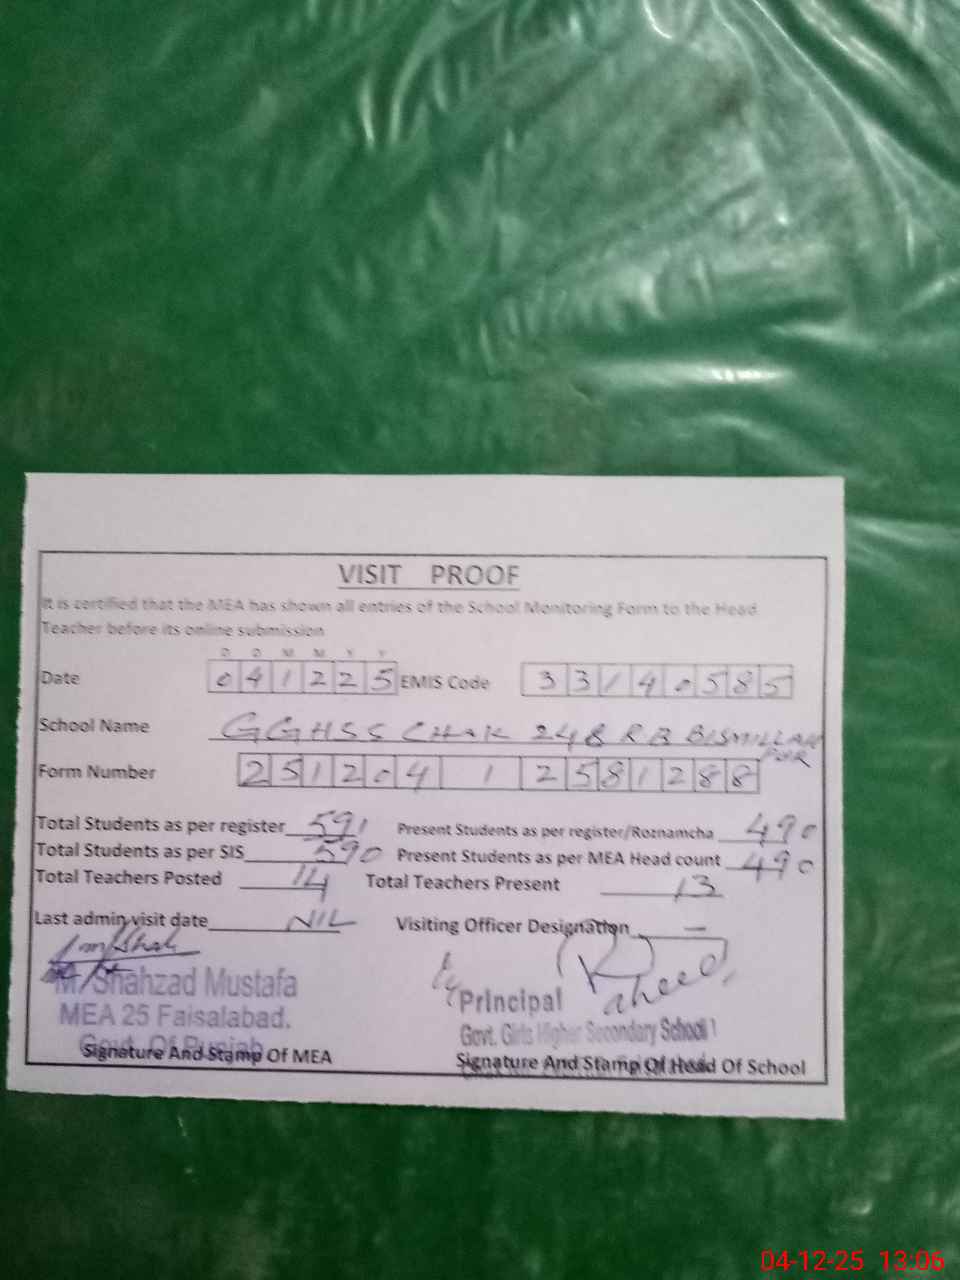 VISIT PROOF
It is certified that the MEA has shown all entries of the School Monitoring Form to the Head
Teacher before its online submission
D D M M Y Y
Date 041225 EMIS Code 33140585
School Name GGHSS CHAK 248 RB BISMILLAH
PUR
Form Number 251204 1 2581288
Total Students as per register 591 Present Students as per register/Roznamcha 490
Total Students as per SIS 590 Present Students as per MEA Head count 490
Total Teachers Posted 14 Total Teachers Present 13
Last admin visit date NIL Visiting Officer Designation –
M. Shahzad Mustafa
MEA 25 Faisalabad.
Govt. Of Punjab
Signature And Stamp Of MEA
Principal
Govt. Girls Higher Secondary School
Signature And Stamp Of Head Of School
04-12-25 13:06